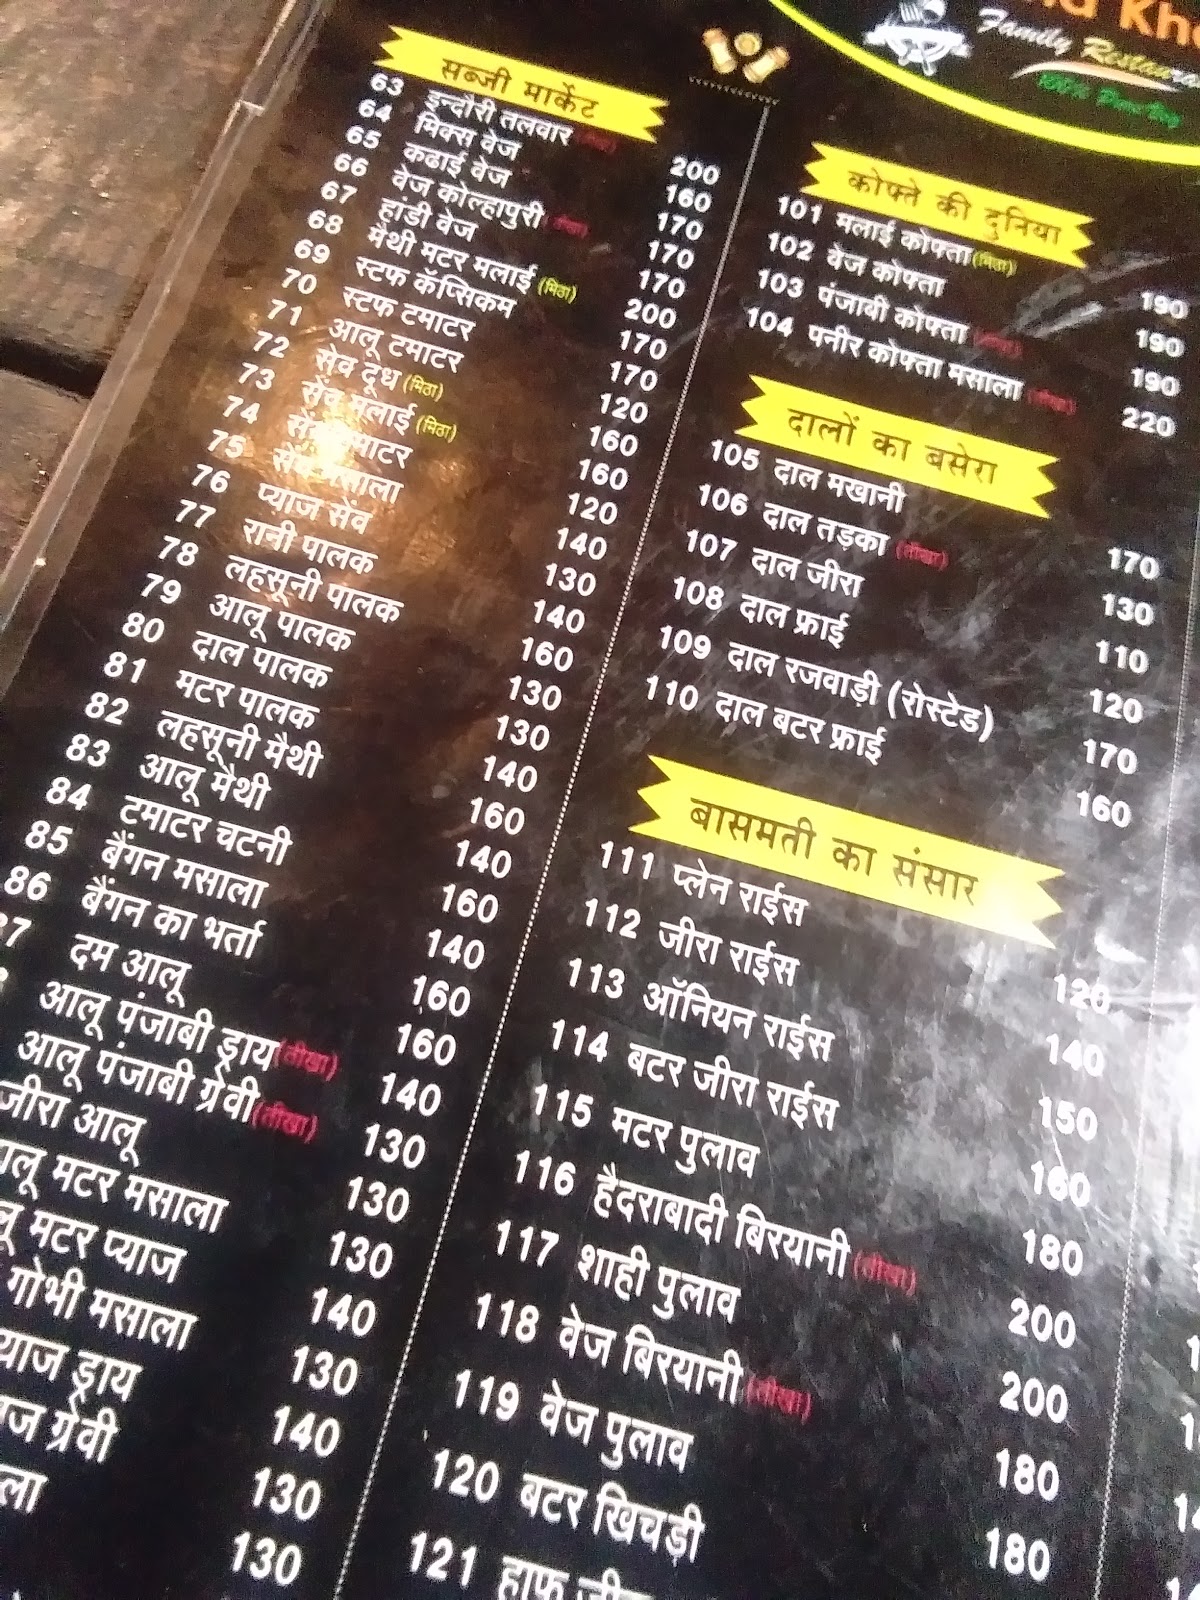 Family
100%
सब्जी मार्केट
63 इन्दौरी तलवार 200
64 मिक्स वेज 160
65 कढाई वेज 170
66 वेज कोल्हापुरी 170
67 हांडी वेज 170
68 मैथी मटर मलाई (मिठा) 200
69 स्टफ कॅप्सिकम 170
70 स्टफ टमाटर 170
71 आलू टमाटर 120
72 सेव दूध (मिठा) 160
73 सेंव मलाई (मिठा) 160
74 सेंव टमाटर 120
75 सेंव मसाला 140
76 प्याज सेंव 130
77 रानी पालक 140
78 लहसूनी पालक 160
79 आलू पालक 130
80 दाल पालक 130
81 मटर पालक 140
82 लहसूनी मैथी 160
83 आलू मैथी 140
84 टमाटर चटनी 160
85 बैंगन मसाला 140
86 बैंगन का भर्ता 160
दम आलू 160
आलू पंजाबी ड्राय (तीखा) 140
आलू पंजाबी ग्रेवी (तीखा) 130
जीरा आलू 130
मटर मसाला 130
मटर प्याज 140
गोभी मसाला 130
ड्राय 140
ग्रेवी 130
130
कोफ्ते की दुनिया
101 मलाई कोफ्ता (मिठा) 190
102 वेज कोफ्ता 190
103 पंजाबी कोफ्ता 190
104 पनीर कोफ्ता मसाला (तीखा) 220
दालों का बसेरा
105 दाल मखानी 170
106 दाल तड़का (तीखा) 130
107 दाल जीरा 110
108 दाल फ्राई 120
109 दाल रजवाड़ी (रोस्टेड) 170
110 दाल बटर फ्राई 160
बासमती का संसार
111 प्लेन राईस 120
112 जीरा राईस 140
113 ऑनियन राईस 150
114 बटर जीरा राईस 160
115 मटर पुलाव 180
116 हैदराबादी बिरयानी (तीखा) 200
117 शाही पुलाव 200
118 वेज बिरयानी (तीखा) 180
119 वेज पुलाव 180
120 बटर खिचड़ी
121 हाफ